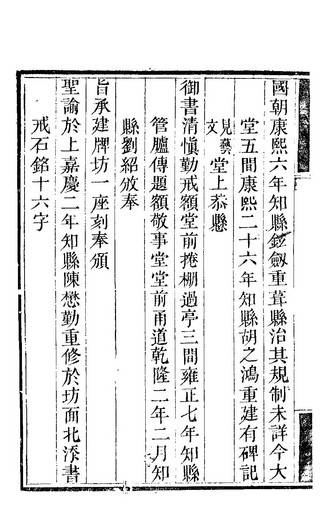 國朝康熙六年知縣鉉劔重葺縣治其規制未詳今大
堂五間康熙二十六年知縣胡之鴻重建有碑記
見藝文堂上恭懸
御書清慎勤戒額堂前捲棚過亭三間雍正七年知縣
管臚傳題額敬事堂堂前甬道乾隆二年二月知
縣劉紹攽奉
旨承建牌坊一座刻奉頒
聖諭於上嘉慶二年知縣陳懋勤重修於坊面北添書
戒石銘十六字